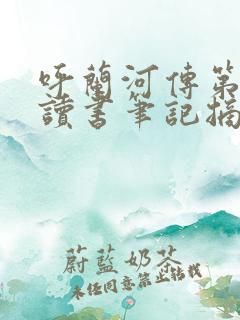 呼蘭河傳第
讀書筆記摘
蔚藍奶茶
未経同意禁止轉載